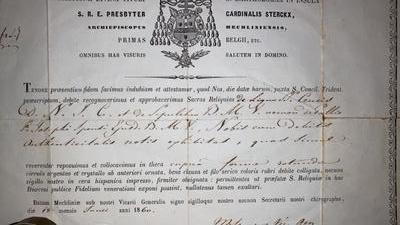 S. R. E. PRESBYTER CARDINALIS STERCKX,
ARCHIEPISCOPUS MECHLINIENSIS,
PRIMAS BELGII, ETC.
OMNIBUS HAS VISURIS SALUTEM IN DOMINO.
TENORE præsentium fidem facimus indubiam et attestamur, quod Nos, die datæ harum, juxta S. Concil. Trident
præscriptum, debite recognoverimus et approbaverimus Sacras Reliquias de Ligno S. Crucis
D. N. J. C. et de Sepulchro B. M. V. necnon
S. Josephi sponsi ejusd. B. M. V. Nobis cum debitis
authenticitatis notis exhibitas, quas
reverenter reposuimus et collocavimus in theca cuprea formæ rotundæ
vitrali ab anteriori ornata, bene clausa et filo serico coloris rubri debite colligata, necnon
sigillo nostro in cera hispanica impresso, firmiter obsignata; permittentes ut præfatæ S. Reliquiæ in hac
Diœcesi publicæ Fidelium venerationi exponi possint, nullatenus tamen exaltari.
Datum Mechliniæ sub nostri Vicarii Generalis signo sigilloque nostro necnon Secretarii nostri chirographo,
die mensis Junii anni 1860.